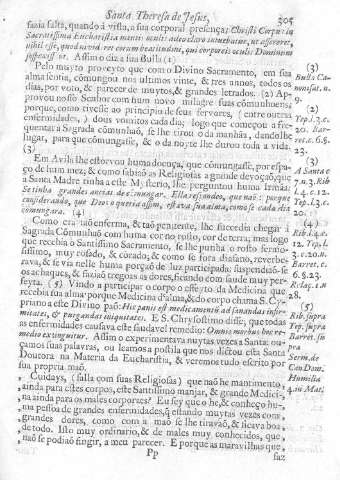 Santa Theresa de Jesus, 305
fazia falta, quando à vista, a sua corporal presença: Christi Corpus in
Sacratissima Eucharistia mentis oculis adeo clarè intuebatur, ut assereret,
nihil esse, quod invideret eorum beatitudini, qui corporeis oculis Dominum
Assim o diz a sua Bulla (1)
Pelo muyto proveyto que com o Divino Sacramento, em sua
alma sentia, cõmungou nos ultimos vinte, & tres annos, todos os
dias, por voto, & parecer de muytos, & grandes letrados. (2) Ap-
provou nosso Senhor com hum novo milagre suas cõmunhoens;
porque, como tivesse ao principio de seus fervores, (entre outras
enfermidades,) dous vomitos cada dia; logo que começou a fre-
quentar a Sagrada cõmunhaõ, se lhe tirou o da manhãa, dandolhe
lugar, para que cõmungasse, & o da noyte lhe durou toda a vida.
(3)
Em Avila lhe estorvou huma doença, que cõmungasse, por espa-
ço de hum mez; & como sabiaõ as Religiosas a grande devoçaõ, que
a Santa Madre tinha a este Mysterio, lhe perguntou huma Irmãa:
Se tinha grandes ancias de cõmungar. Ella respondeo, que naõ: porque
considerando, que Deos o queria assim, estava sua alma, como se cada dia
cõmungara. (4)
Como era taõ enferma, & taõ penitente, lhe succedia chegar à
Sagrada Cõmunhaõ com huma cor no rosto, cor de terra; mas logo
que recebia o Santissimo Sacramento, se lhe punha o rosto fermo-
sissimo, muy rosado, & corado; & como se fora diafano, reverbe-
rava, & se via nelle huma porçaõ de luz participada: suspendiaõ-se
os achaques, & faziaõ tregoas as dores, ficando com saude muy per-
feyta. (5) Vindo a participar o corpo o effeyto da Medicina que
recebia sua alma: porque Medicina d'alma, & do corpo chama S. Cy-
priano a este Divino paõ: Hic panis est medicamentũ ad sanandas infir-
mitates, & purgandas iniquitates. E S. Chrysostomo disse, que todas
as enfermidades causava este saudavel remedio: Omnes morbos hoc re-
medio extinguitur. Assim o experimentava muytas vezes a Santa: ou-
çamos suas palavras, ou leamos a postila que nos dictou esta Santa
Doutora na Materia da Eucharistia, & veremos tudo escrito por
sua propria maõ.
,, Cuidays, (falla com suas Religiosas) que naõ he mantimento,
,, ainda para estes corpos, este Santissimo manjar, & grande Medici-
,, na ainda para os males corporaes? Eu sey que o he, & conheço hu-
,, ma pessoa de grandes enfermidades, q̃ estando muytas vezes com
,, grandes dores, como com a maõ se lhe tiravaõ, & ficava boa
,, de todo. Isto muy ordinario, & de males muy conhecidos, que
,, naõ se podiaõ fingir, a meu parecer. E porque as maravilhas que
Pp
faz
(3)
Bulla Ca-
nonisat. n.
9.
(2)
Yep. l. 3. c.
20.
Barret. c. 6. §.
23.
(3)
A Santa c
7. n. 3. Rib.
l. 4. c. 12.
Yep. l. 3. c.
20.
(4)
Rib. l. 4. c.
12. Yep. l.
3. c. 20. n.
Barret. c.
6. §. 23.
Relaç. 1. n
28.
(5)
Rib. supra
Yep. supra
Barret. su
pra
Serm. de
Can Dom.
Humilia
4. in Mat.